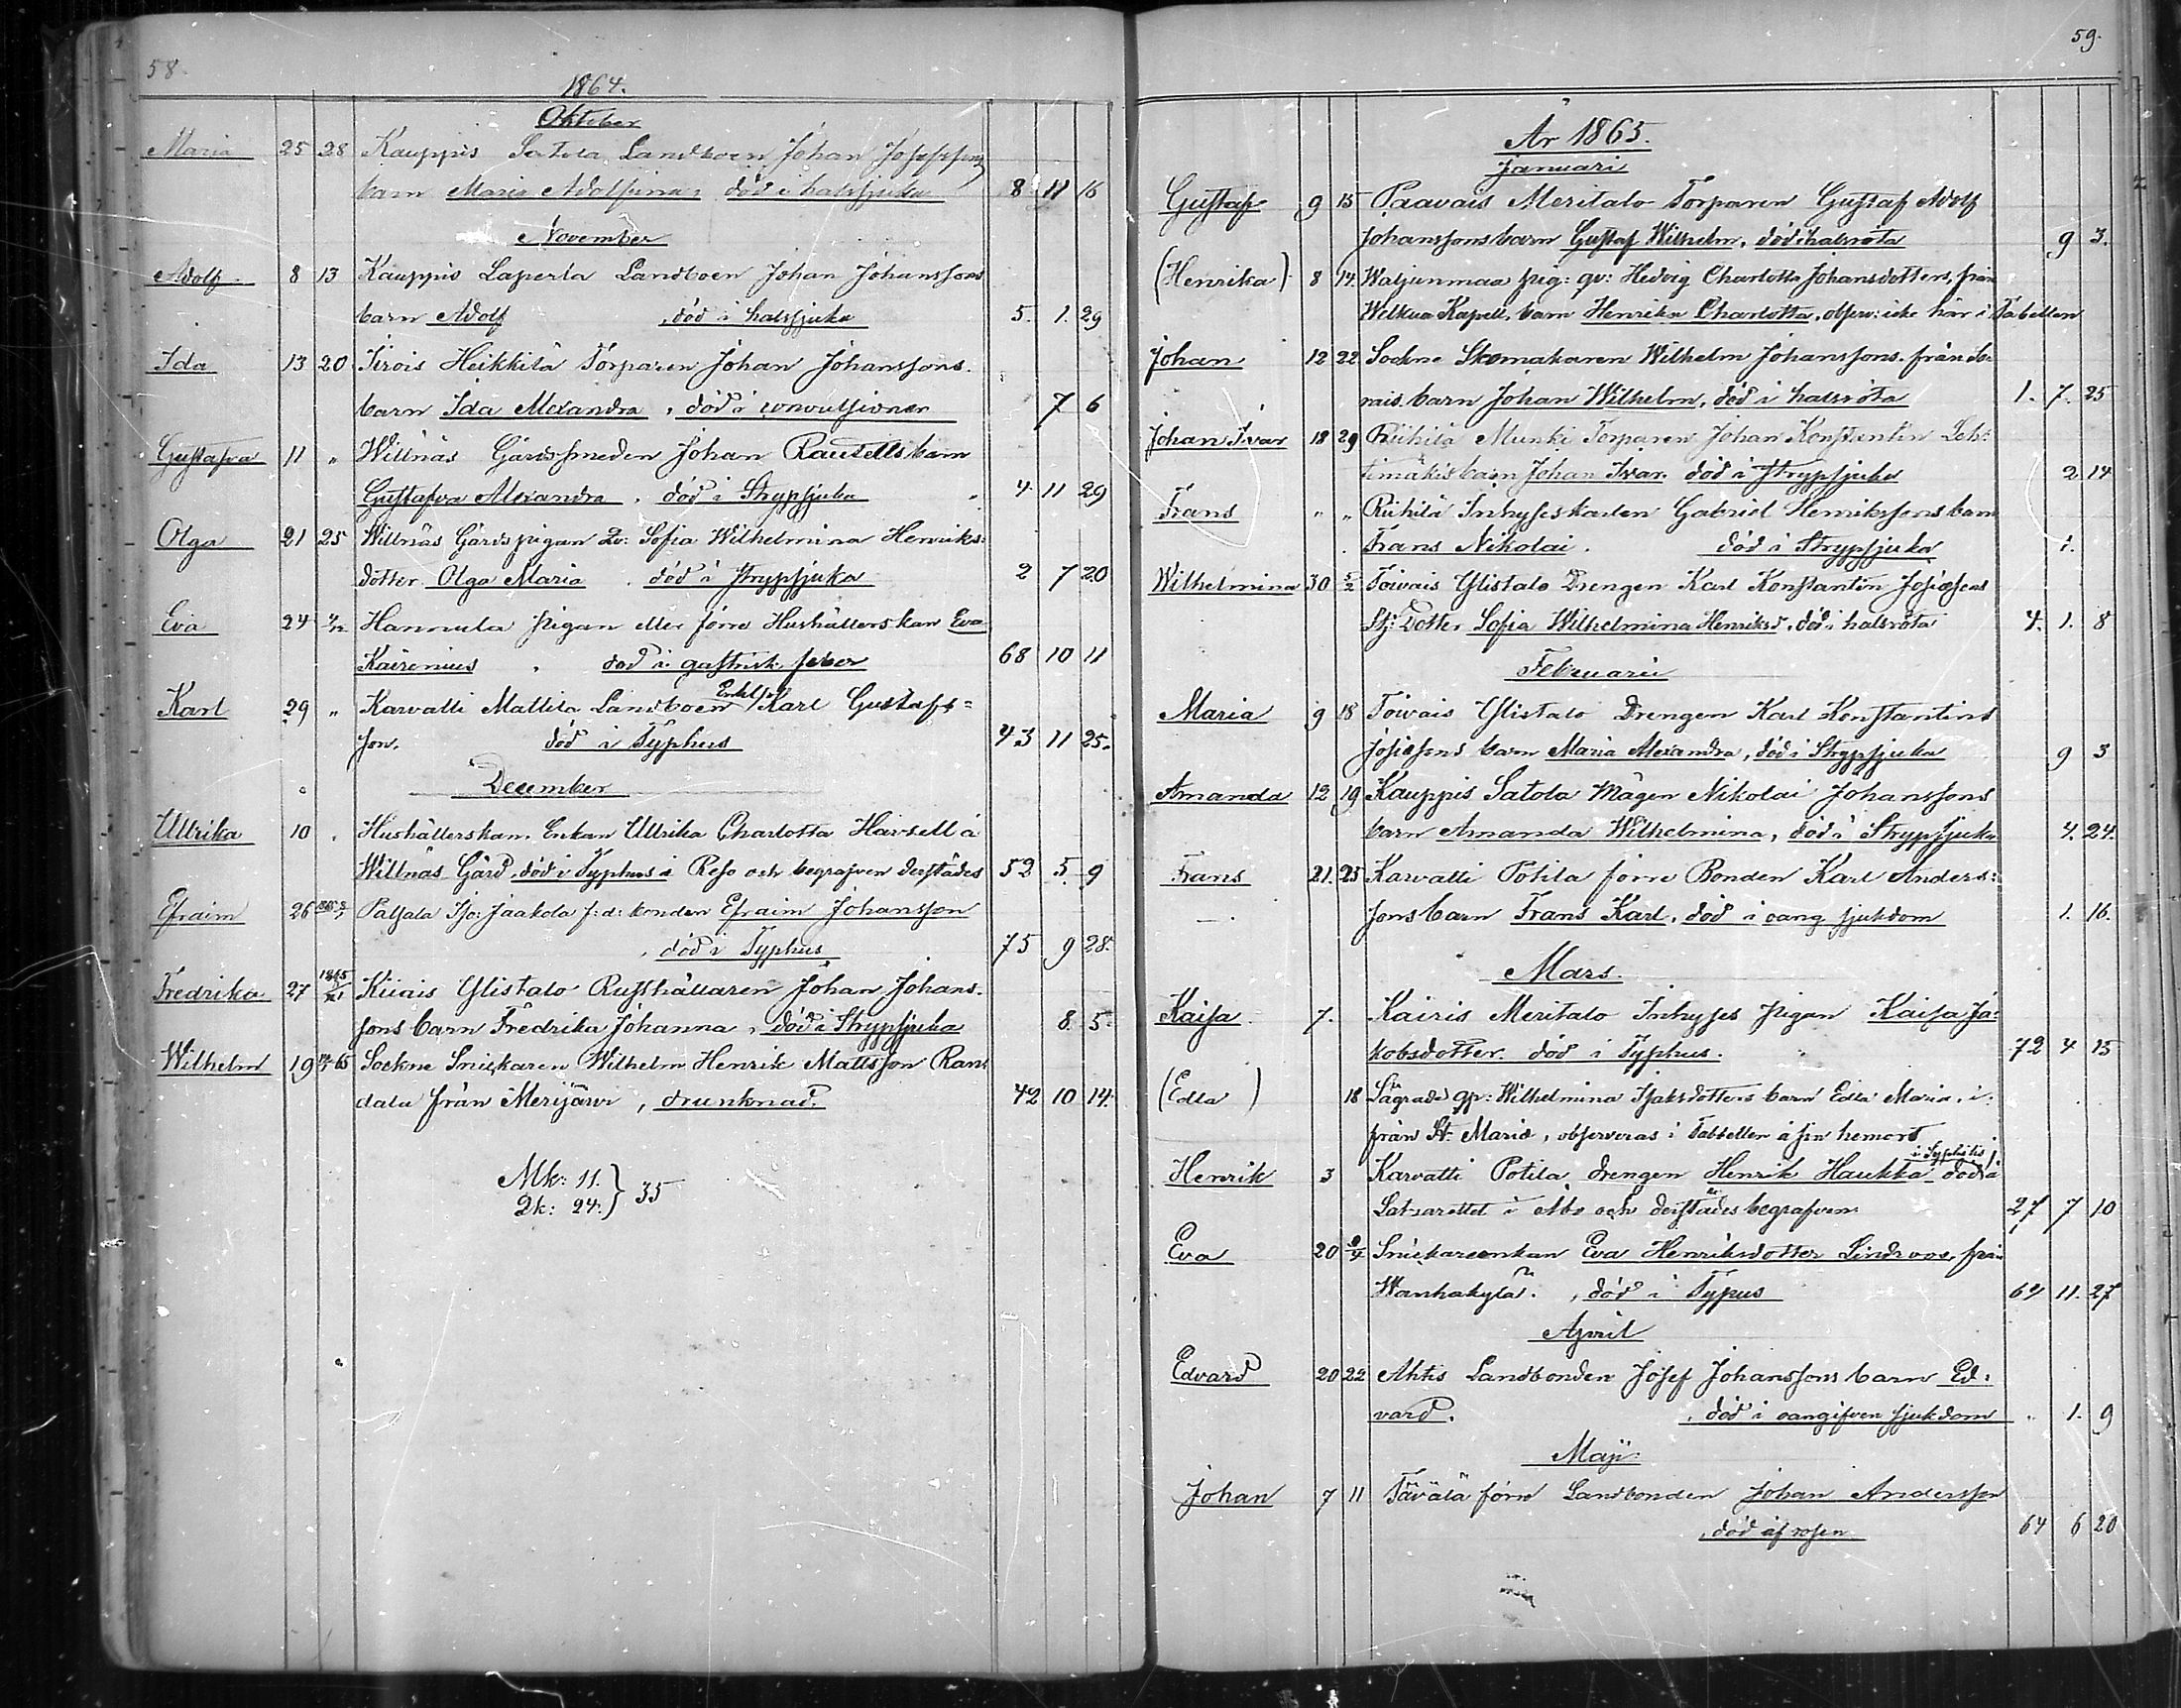 58.
1864.
Oktober
Maria 25 28 Kauppis Satola Landboen Johan Josefssons
barn Maria Adolfina, död i halssjuka 8 11 16
November
Adolf 8 13 Kauppis Laperla Landboen Johan Johanssons
barn Adolf, död i halssjuka 5. 1. 29
Ida 13 20 Heikkilä Torparen Johan Johanssons
barn Ida Alexandra, död i convulsioner 7 6
Gustafva 11 " Willnäs Gårdssmeden Johan Rautells barn
Gustafva Alexandra, död i Strypsjuka 4 11 29
Olga 21 25 Willnäs Gårdspigan Qv: Sofia Wilhelmina Henriks:
dotter Olga Maria, död i strypsjuka 2 7 20
Eva 24 4/12 Hannula pigan eller förre Hushållerskan Eva
Kairenius, död i gastrisk feber 68 10 11
Karl 29 " Karvatti Mattila Landboen Enkl. Karl Gustafs=
son. död i Typhus 43 11 25.
December
Ullrika 10 . Hushållerskan Enkan Ullrika Charlotta Harsell å
Willnäs Gård, död i Typhus i Reso och begrafven derstädes 52 5. 9
Efraim 26 Palsala Iso: Jaakola f:d: bonden Efraim Johansson
, död i Typhus 75 9 28.
Fredrika 27 1865 Kiiais Ylistalo Rusthållaren Johan Johans.
sons barn Fredrika Johanna, död i Strypsjuka 8 5.
Wilhelm 19 65 Sockne Snickaren Wilhelm Henrik Mattsson Ran
dala från Merijärvi, drunknad. 42 10 14.
Mk: 11. } 35
Qk: 24.
59.
År 1865.
Januari
Gustaf 9 15 Paavais Meritalo Torparen Gustaf Adolf
Johanssons barn Gustaf Wilhelm, död i halsröta 9 3.
(Henrika) 8 14. Waljenmaa pig: qv: Hedvig Charlotta Johansdotters, från
Welkua Kapell, barn Henrika Charlotta, observ: icke här i Tabellen
Johan 12 22 Sockne Skomakaren Wilhelm Johanssons från
nais barn Johan Wilhelm, död i halsröta 1. 7. 25
Johan Ivar 18 29 Riihilä Munki Torparen Johan Konstantin Leh:
timäkis barn Johan Ivar. död i Strypsjuka 2 14
Frans " " Riihilä Inhyseskarlen Gabriel Henrikssons barn
Frans Nikolai. död i Strypsjuka 1.
Wilhelmina 30 5/2 Toivais Ylistalo Drengen Karl Konstantin Josefsons
Stj: Dotter Sofia Wilhelmina Henriksd, död i halsröta 4. 1. 8
Februarii
Maria 9 18 Toivais Ylistalo Drengen Karl Konstantins
Josefsons barn Maria Alexandra, död i Strypsjuka 9 3
Amanda 12 19 Kauppis Satola Mågen Nikolai Johanssons
barn Amanda Wilhelmina, död i Strypsjuka 4. 24.
Frans 21. 25 Karvatti Potila förre Bonden Karl Anders:
sons barn Frans Karl, död i oang sjukdom 1. 16.
Mars.
Kaisa 7. Kairis Meritalo Inhyses pigan Kaisa Ja:
kobsdotter. död i Typhus. 72 4 15
(Edla) 18 qv: Wilhelmina Isaksdotters barn Edla Maria, i
från St. Marie, observeras i Tabellen å sin hemort
Henrik 3 Karvatti Potila drengen Henrik Haukka död i Syphilis å
Latsarettet i Åbo och derstädes begrafven 27 7 10
Eva 20 2/4 Snickareenkan Eva Henriksdotter Lindroos, från
Wanhakylä. , död i Typus 64 11. 27
April
Edvard 20 22 Ahtis Landbonden Josef Johanssons barn Ed:
vard. , död i oangifven sjukdom " 1. 9
Maji
Johan 7 11 Tävälä förre Landbonden Johan Andersson
, död af rosen 64 6 20